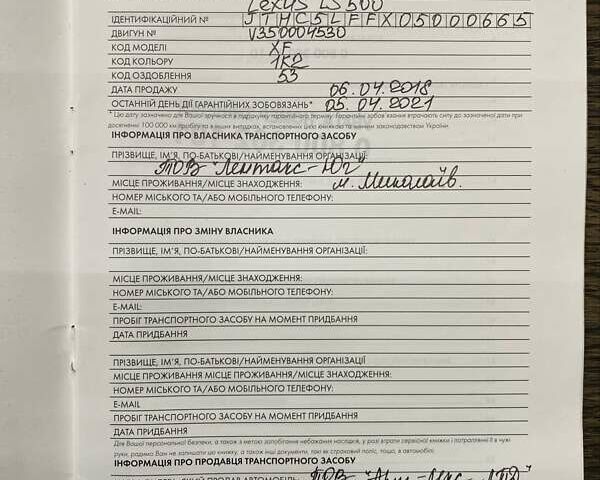 Lexus LS500
ІДЕНТИФІКАЦІЙНИЙ № JTHC5LFFX05000665
ДВИГУН № V350004530
КОД МОДЕЛІ XF
КОД КОЛЬОРУ 1K2
КОД ОЗДОБЛЕННЯ 53
ДАТА ПРОДАЖУ 06.04.2018
ОСТАННІЙ ДЕНЬ ДІЇ ГАРАНТІЙНИХ ЗОБОВЯЗАНЬ* 05.04.2021
* Цю дату зазначено для Вашої зручності в підрахунку гарантійного терміну. Гарантійні зобов'язання втрачають силу до зазначеної дати при
досягненні 100 000 км пробігу та в інших випадках, встановлених цією книжкою та чинним законодавством України.
ІНФОРМАЦІЯ ПРО ВЛАСНИКА ТРАНСПОРТНОГО ЗАСОБУ
ПРІЗВИЩЕ, ІМ'Я, ПО-БАТЬКОВІ/НАЙМЕНУВАННЯ ОРГАНІЗАЦІЇ:
ТОВ "Лентакс-Юг"
МІСЦЕ ПРОЖИВАННЯ/МІСЦЕ ЗНАХОДЖЕННЯ: м. Миколаїв.
НОМЕР МІСЬКОГО ТА/АБО МОБІЛЬНОГО ТЕЛЕФОНУ:
E-MAIL:
ІНФОРМАЦІЯ ПРО ЗМІНУ ВЛАСНИКА
ПРІЗВИЩЕ, ІМ'Я, ПО-БАТЬКОВІ/НАЙМЕНУВАННЯ ОРГАНІЗАЦІЇ:
МІСЦЕ ПРОЖИВАННЯ/МІСЦЕ ЗНАХОДЖЕННЯ:
НОМЕР МІСЬКОГО ТА/АБО МОБІЛЬНОГО ТЕЛЕФОНУ:
E-MAIL:
ПРОБІГ ТРАНСПОРТНОГО ЗАСОБУ НА МОМЕНТ ПРИДБАННЯ
ДАТА ПРИДБАННЯ
ПРІЗВИЩЕ, ІМ'Я, ПО-БАТЬКОВІ/НАЙМЕНУВАННЯ ОРГАНІЗАЦІЇ
МІСЦЕ ПРОЖИВАННЯ МІСЦЕ ПРОЖИВАННЯ/МІСЦЕ ЗНАХОДЖЕННЯ:
НОМЕР МІСЬКОГО ТА/АБО МОБІЛЬНОГО ТЕЛЕФОНУ:
E-MAIL
ПРОБІГ ТРАНСПОРТНОГО ЗАСОБУ НА МОМЕНТ ПРИДБАННЯ
ДАТА ПРИДБАННЯ
Для Вашої персональної безпеки, а також з метою запобігання небажаних наслідків, у разі втрати сервісної книжки і потраплянні її в чужі
руки, радимо Вам не залишати цю книжку, а також інші документи, такі як страховий поліс, тощо, в автомобілі.
ІНФОРМАЦІЯ ПРО ПРОДАВЦЯ ТРАНСПОРТНОГО ЗАСОБУ
ТОВ